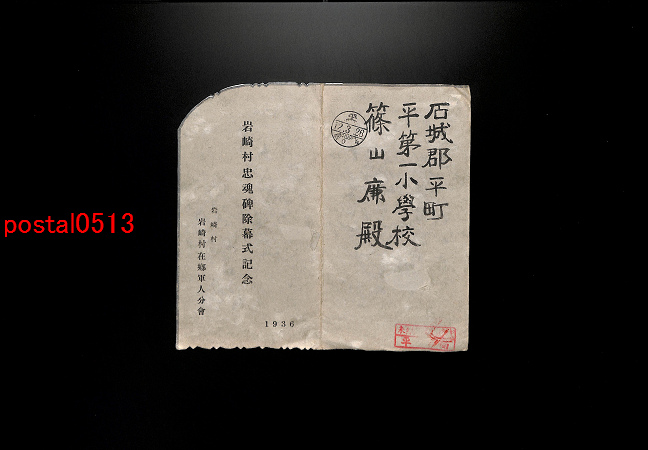 石城郡平町
平第一小學校
篠山廉殿
平
岩崎村忠魂碑除幕式記念
岩崎村
岩崎村在鄉軍人分會
1936
平
postal0513